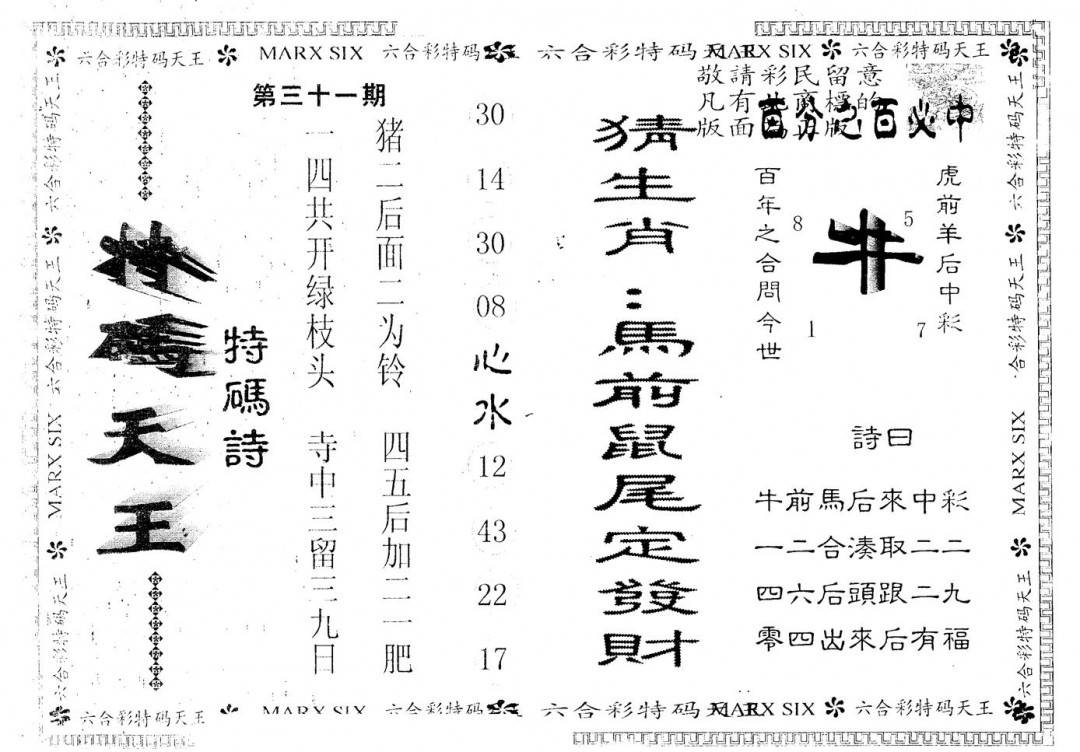 六合彩特码天王 MARX SIX 六合彩特码 六合彩特码天王 MARX SIX 六合彩特码天王
敬請彩民留意
凡有此商標的
版面為正版
百分之百必中
虎前羊后中彩
牛
8 5
1 7
百年之合問今世
詩曰
牛前馬后來中彩
一二合湊取二二
四六后頭跟二九
零四出來后有福
猜生肖:馬前鼠尾定發財
30
14
30
08
心水
12
43
22
17
第三十一期
猪二后面二为铃 四五后加二一肥
一四共开绿枝头 寺中三留三九日
特碼詩
特碼天王
六合彩特码天王 MARX SIX 六合彩特码天王 六合彩特码天王
六合彩特码天王 合彩特码天王 MARX SIX 六合彩特码天王
六合彩特码天王 MARX SIX 六合彩特码 六合彩特码天王 MARX SIX 六合彩特码天王